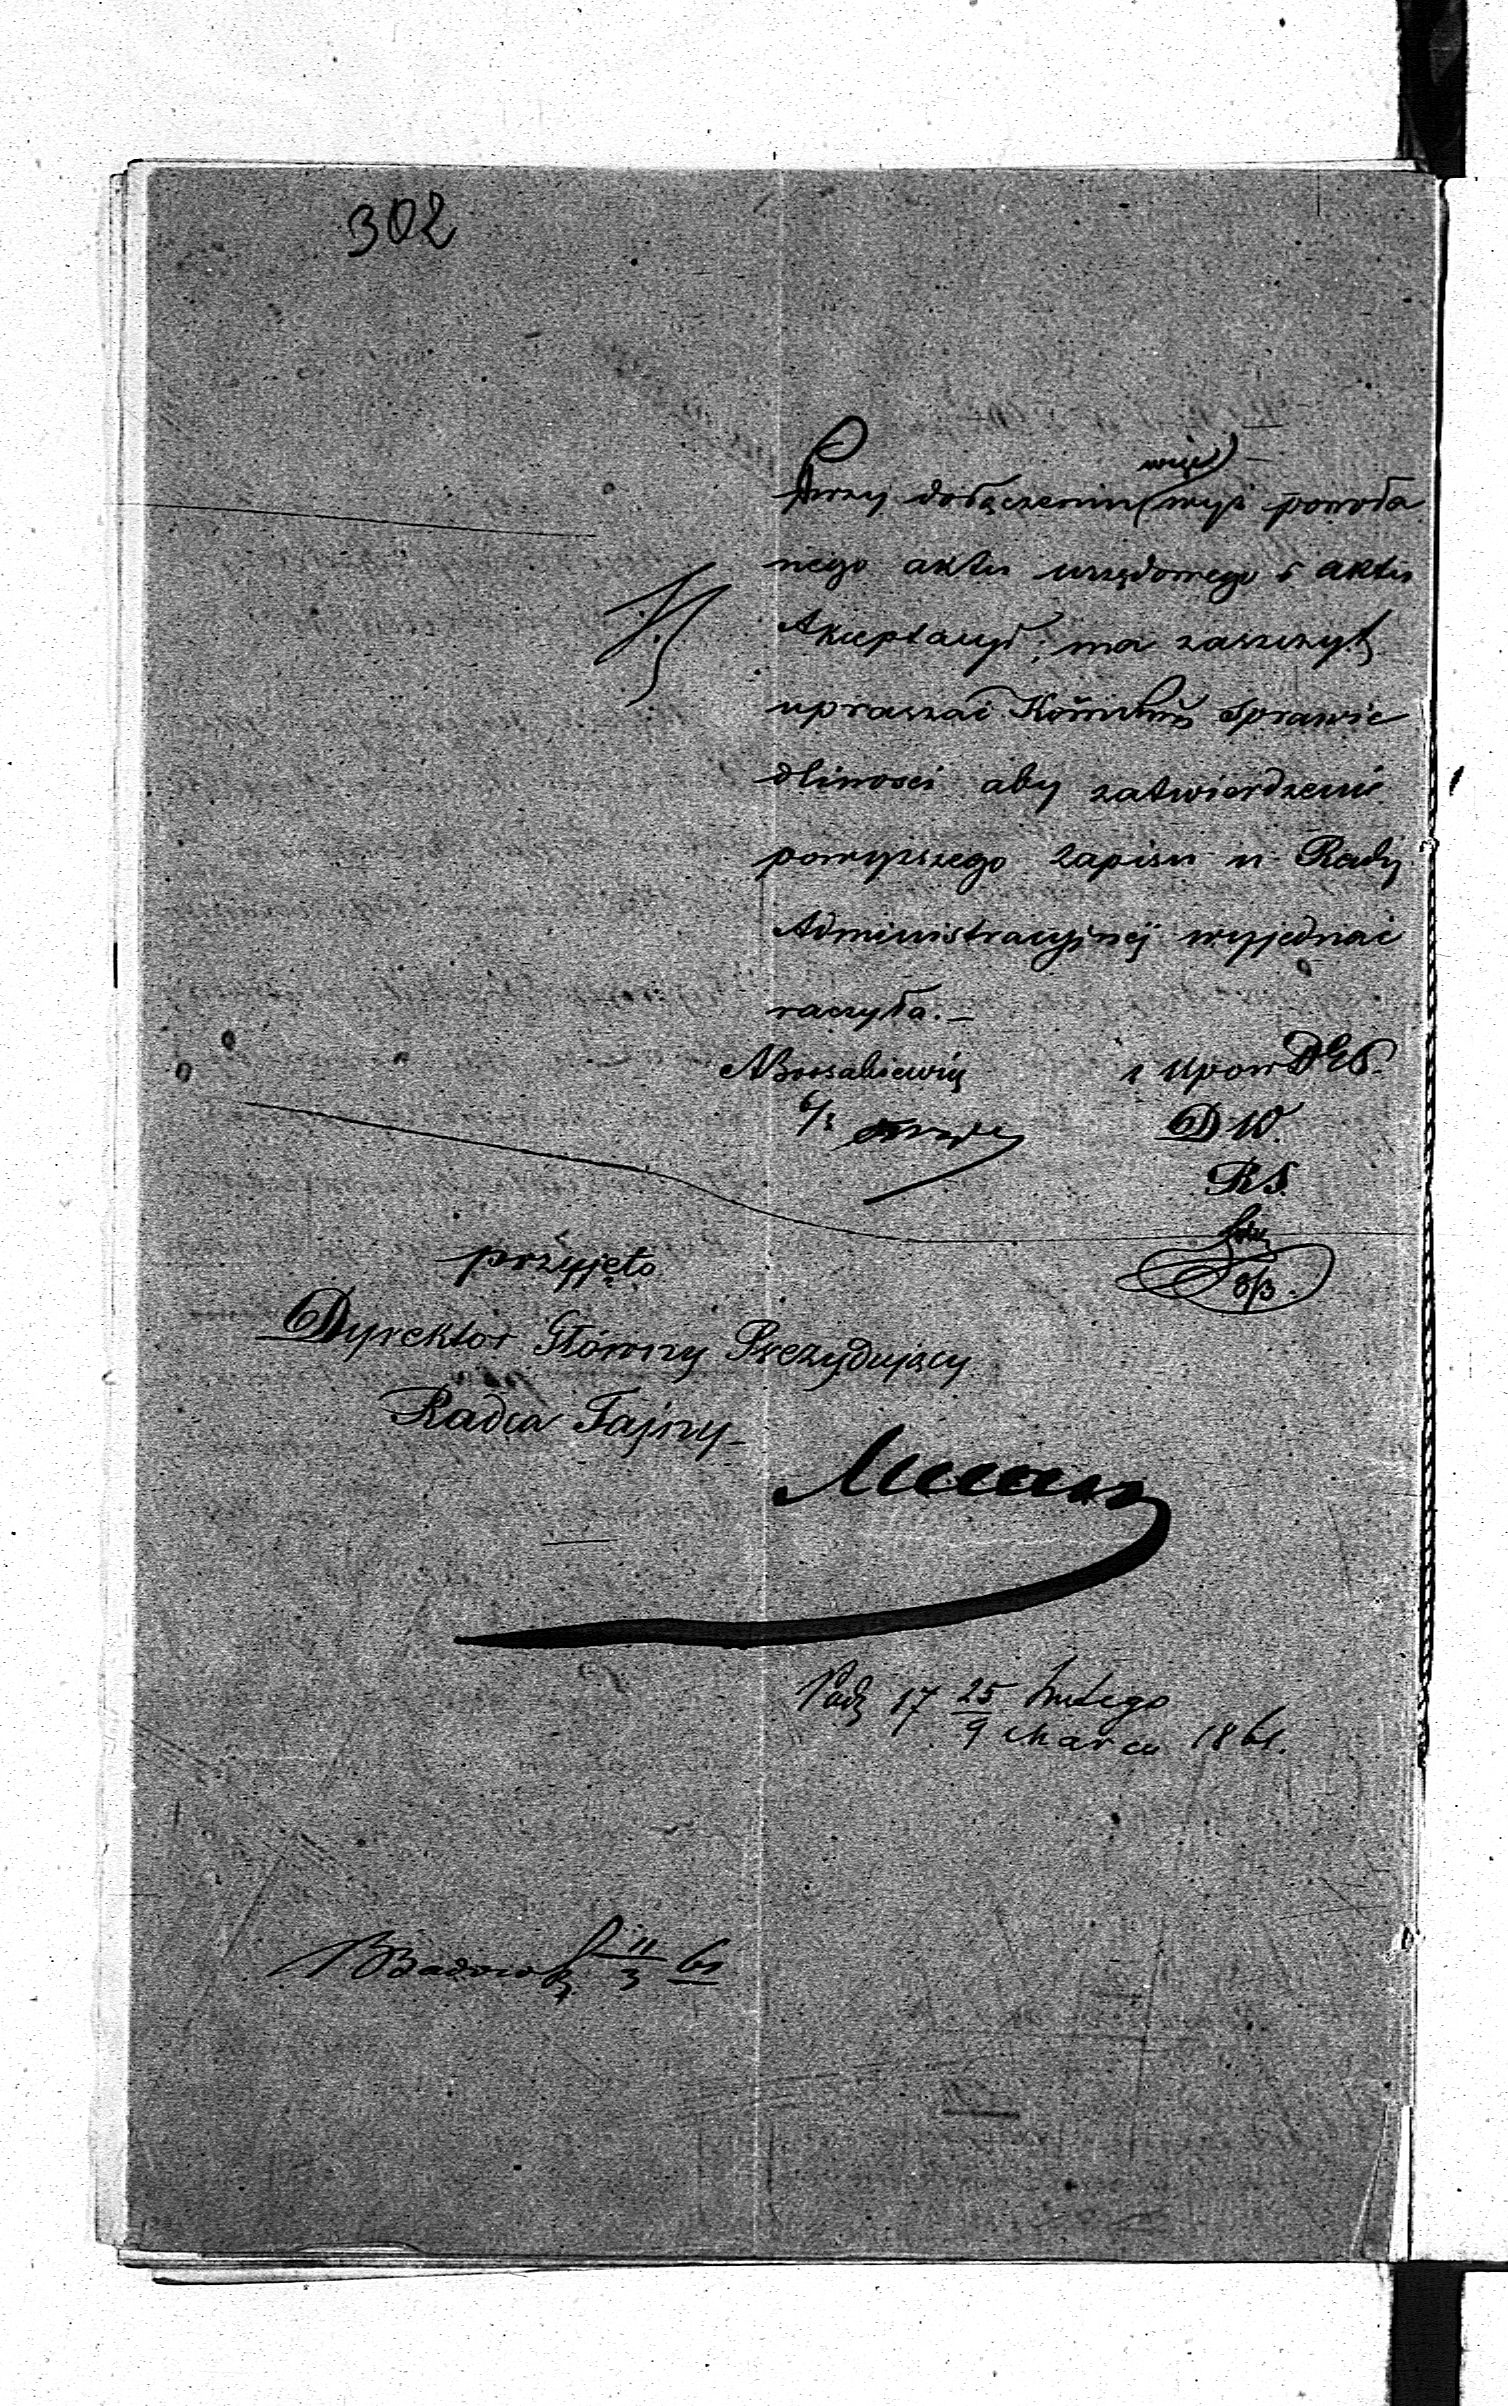 302
więc
Przy dołączeniu wyż powoła
nego aktu urzędowego i aktu
Akceptacyi; ma zaszczyt
upraszać Kommis Sprawie
dliwości aby zatwierdzenie
powyższego zapisu u Rady
Administracyjnej wyjednać
raczyła.—
z upow DGP.
DW.
RS.
8/3.
przyjęto
Dyrektor Główny Prezydujący
Radca Tajny—
17 25 Lutego
9 Marca 1861.
11/3 61